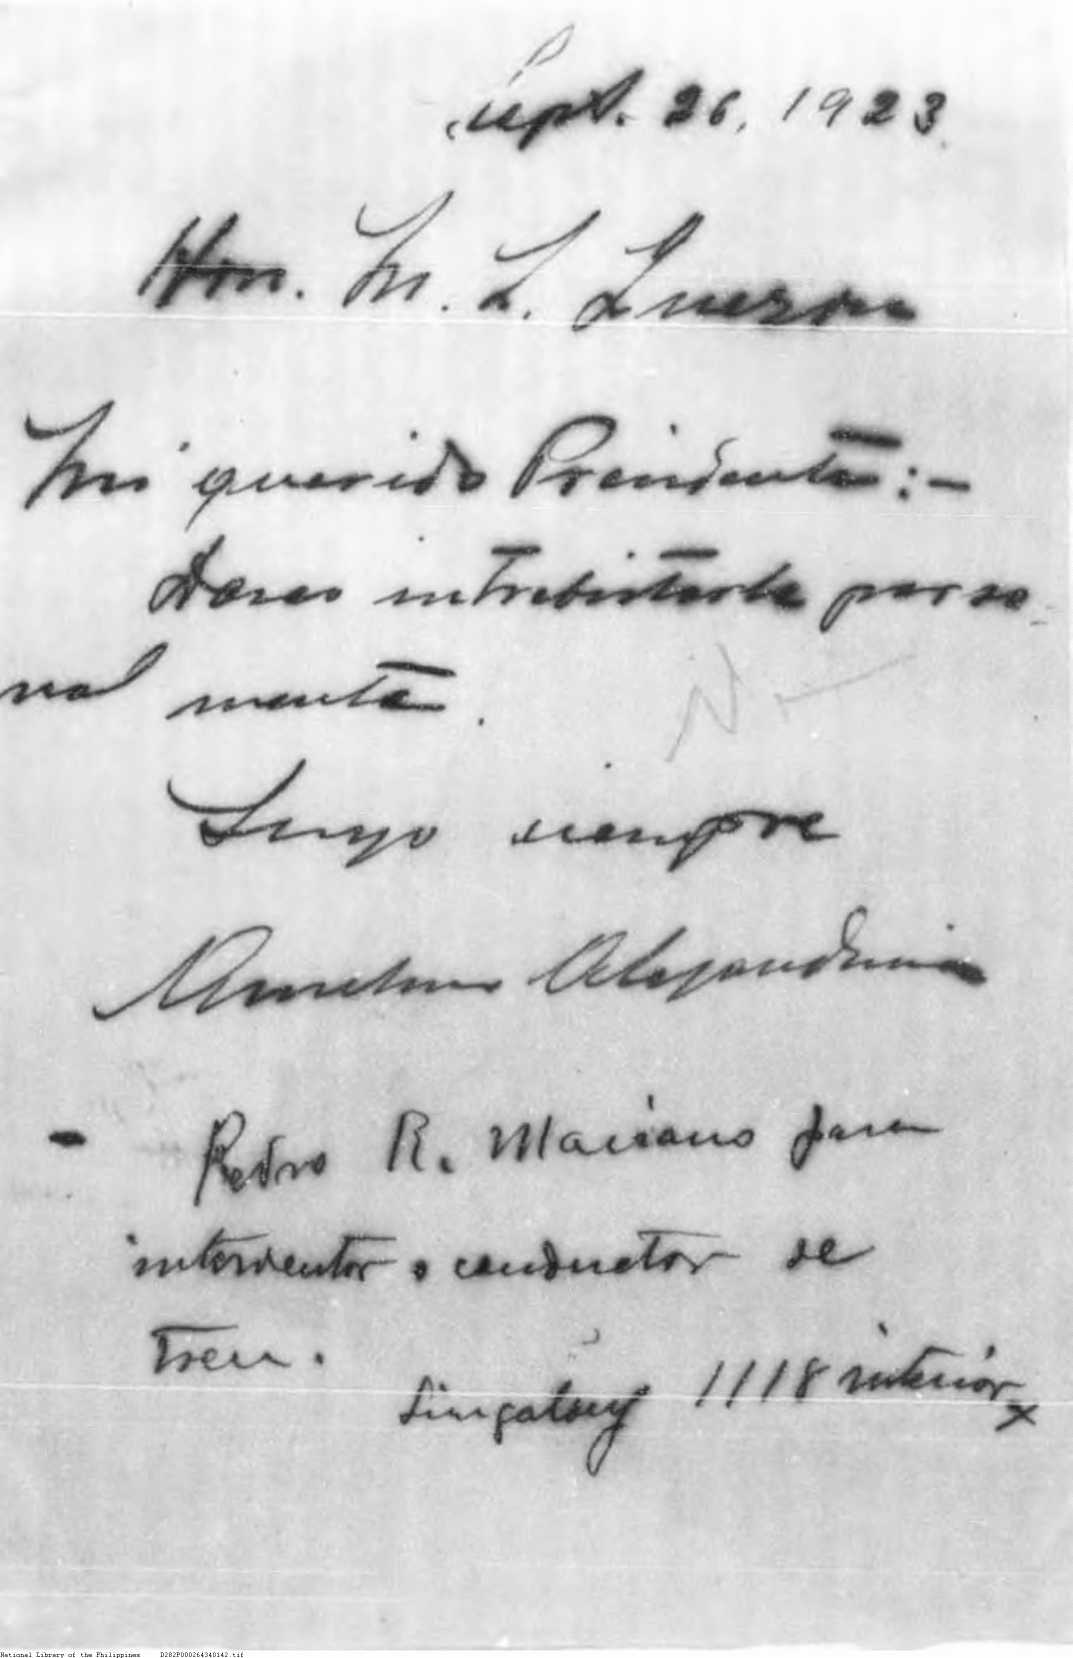 Sept. 26, 1923.
Hon. M. L. Quezon
Mi querido Presidente:-
Deseo intrebistarle perso-
nal mente.
Suyo siempre
Anselmo Alejandrino
- Pedro R. Mariano para
interventor o conductor de
tren.
Singalong 1118 interior x
National Library of the Philippines D282P000264340142.tif